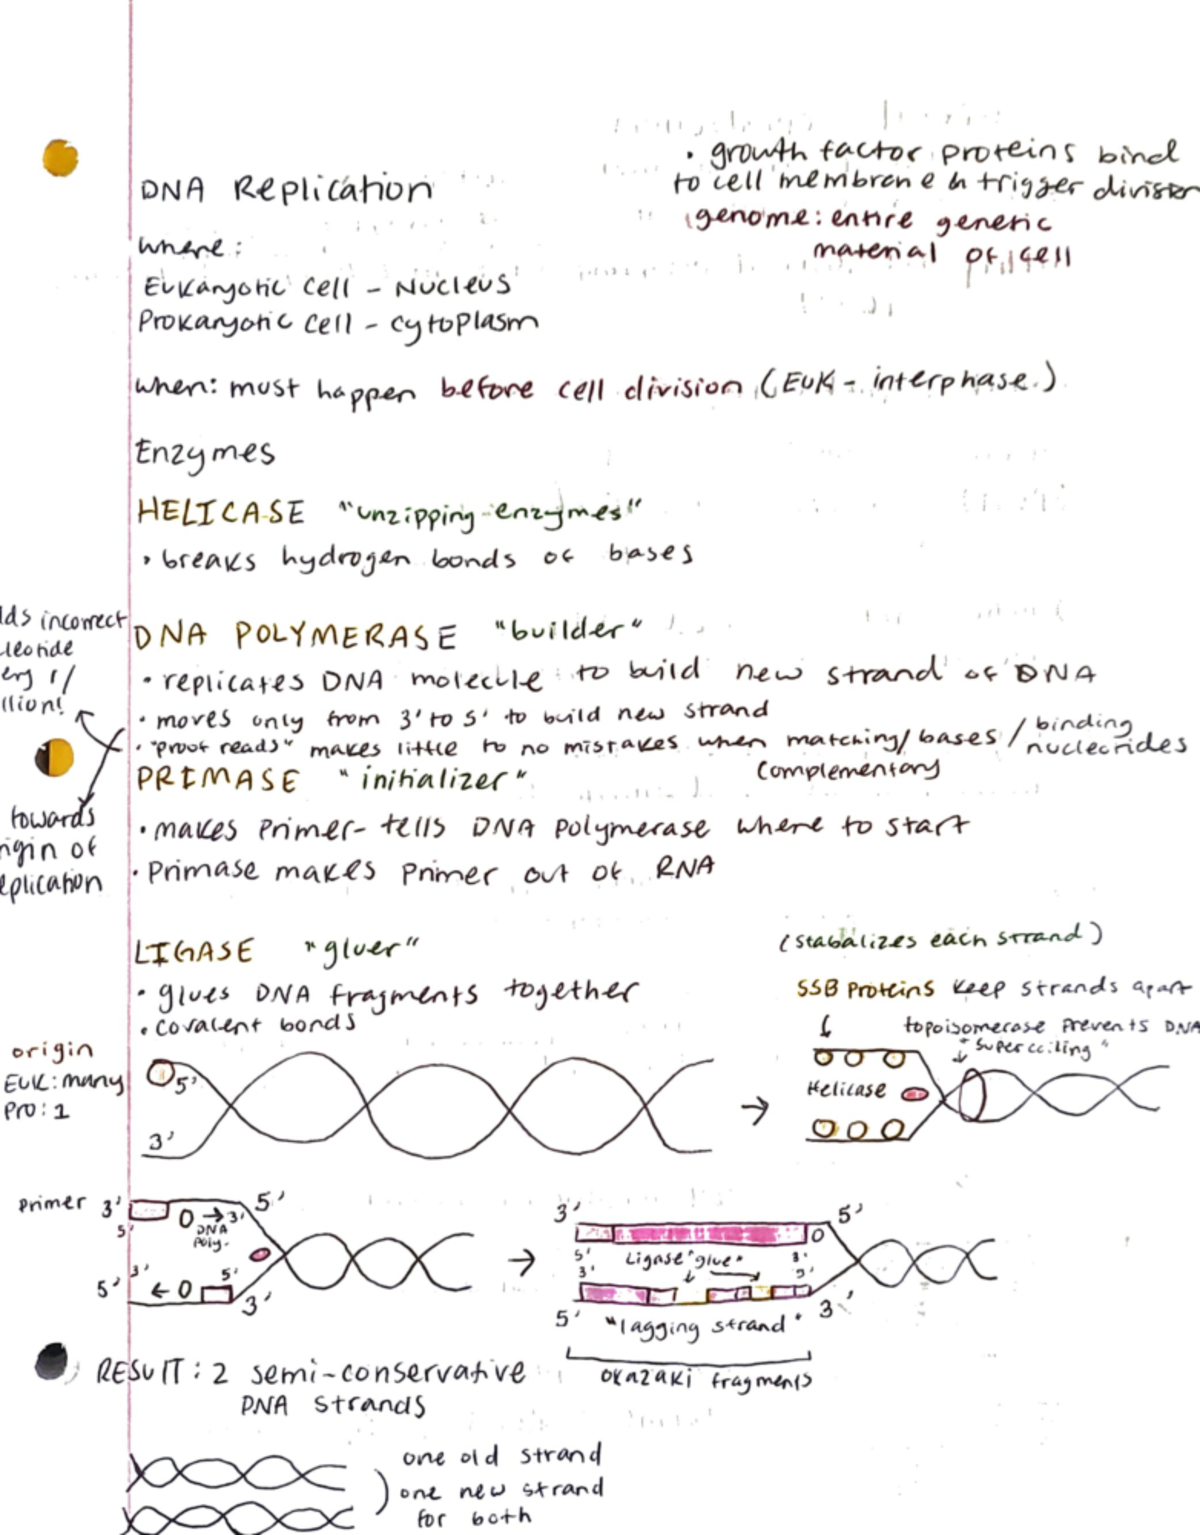 • growth factor proteins bind
to cell membrane & trigger division
genome: entire genetic
material of cell
DNA Replication
where:
Eukaryotic cell - Nucleus
Prokaryotic cell - cytoplasm
when: must happen before cell division (EUK - interphase.)
Enzymes
HELICASE "unzipping enzymes"
• breaks hydrogen bonds of bases
lds incorrect
leotide
ery 1/
llion!
DNA POLYMERASE "builder"
• replicates DNA molecule to build new strand of DNA
• moves only from 3' to 5' to build new strand
• "proof reads" makes little to no mistakes when matching/bases / binding nucleotides
complementary
towards
rigin of
eplication
PRIMASE "initializer"
• makes primer- tells DNA polymerase where to start
• Primase makes primer out of RNA
LIGASE "gluer"
• glues DNA fragments together
• covalent bonds
(stabalizes each strand)
SSB proteins keep strands apart
topoisomerase prevents DNA
"supercoiling"
origin
EUK: many
Pro: 1
5'
3'
→
Helicase
Primer 3' 5'
5' O → 3'
DNA
Poly.
3' 5'
5' ← O 3'
→
3' 5'
5' Ligase "glue" 3'
3' 5'
5' 3'
"lagging strand"
okazaki fragments
RESULT: 2 semi-conservative
DNA strands
one old strand
one new strand
for both